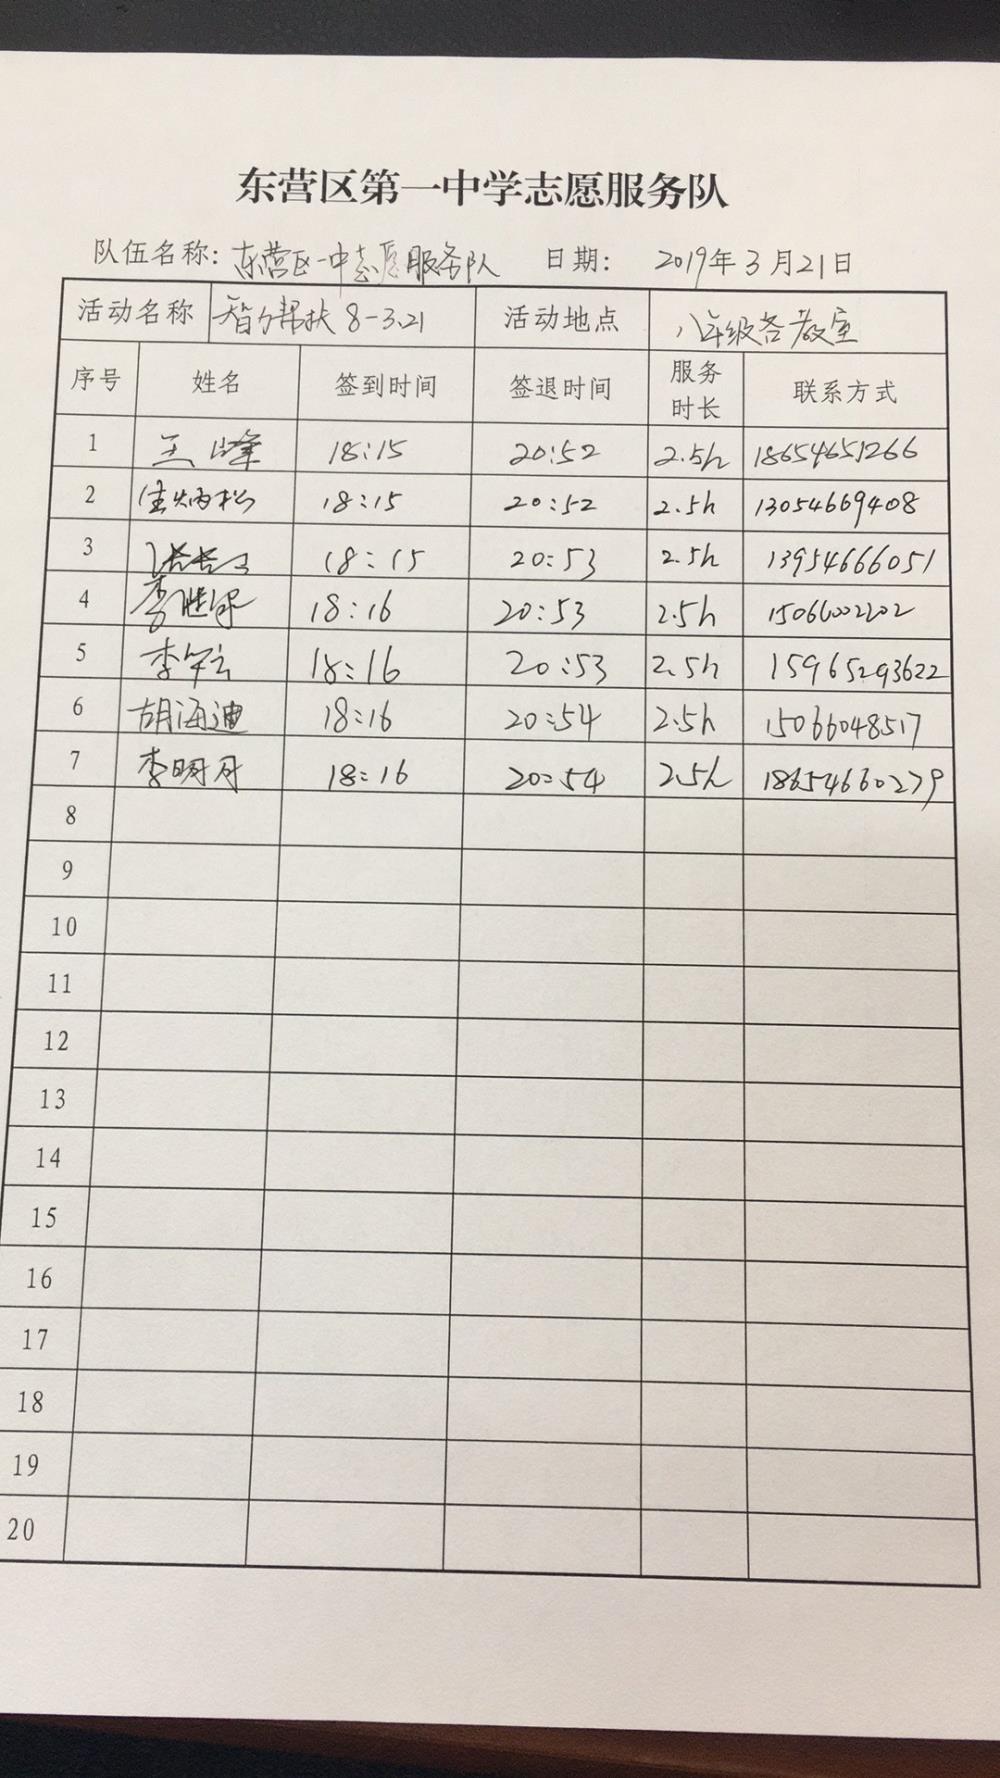 东营区第一中学志愿服务队
队伍名称：东营区一中志愿服务队 日期： 2019年3月21日
活动名称 智力帮扶8-3.21 活动地点 八年级各教室
序号 姓名 签到时间 签退时间 服务时长 联系方式
1 王峰 18:15 20:52 2.5h 18654651266
2 18:15 20:52 2.5h 13054669408
3 18:15 20:53 2.5h 13954666051
4 李 18:16 20:53 2.5h
5 李 18:16 20:53 2.5h 15965293622
6 胡海迪 18:16 20:54 2.5h 15066048517
7 李明月 18:16 20:54 2.5h 18654660279
8
9
10
11
12
13
14
15
16
17
18
19
20